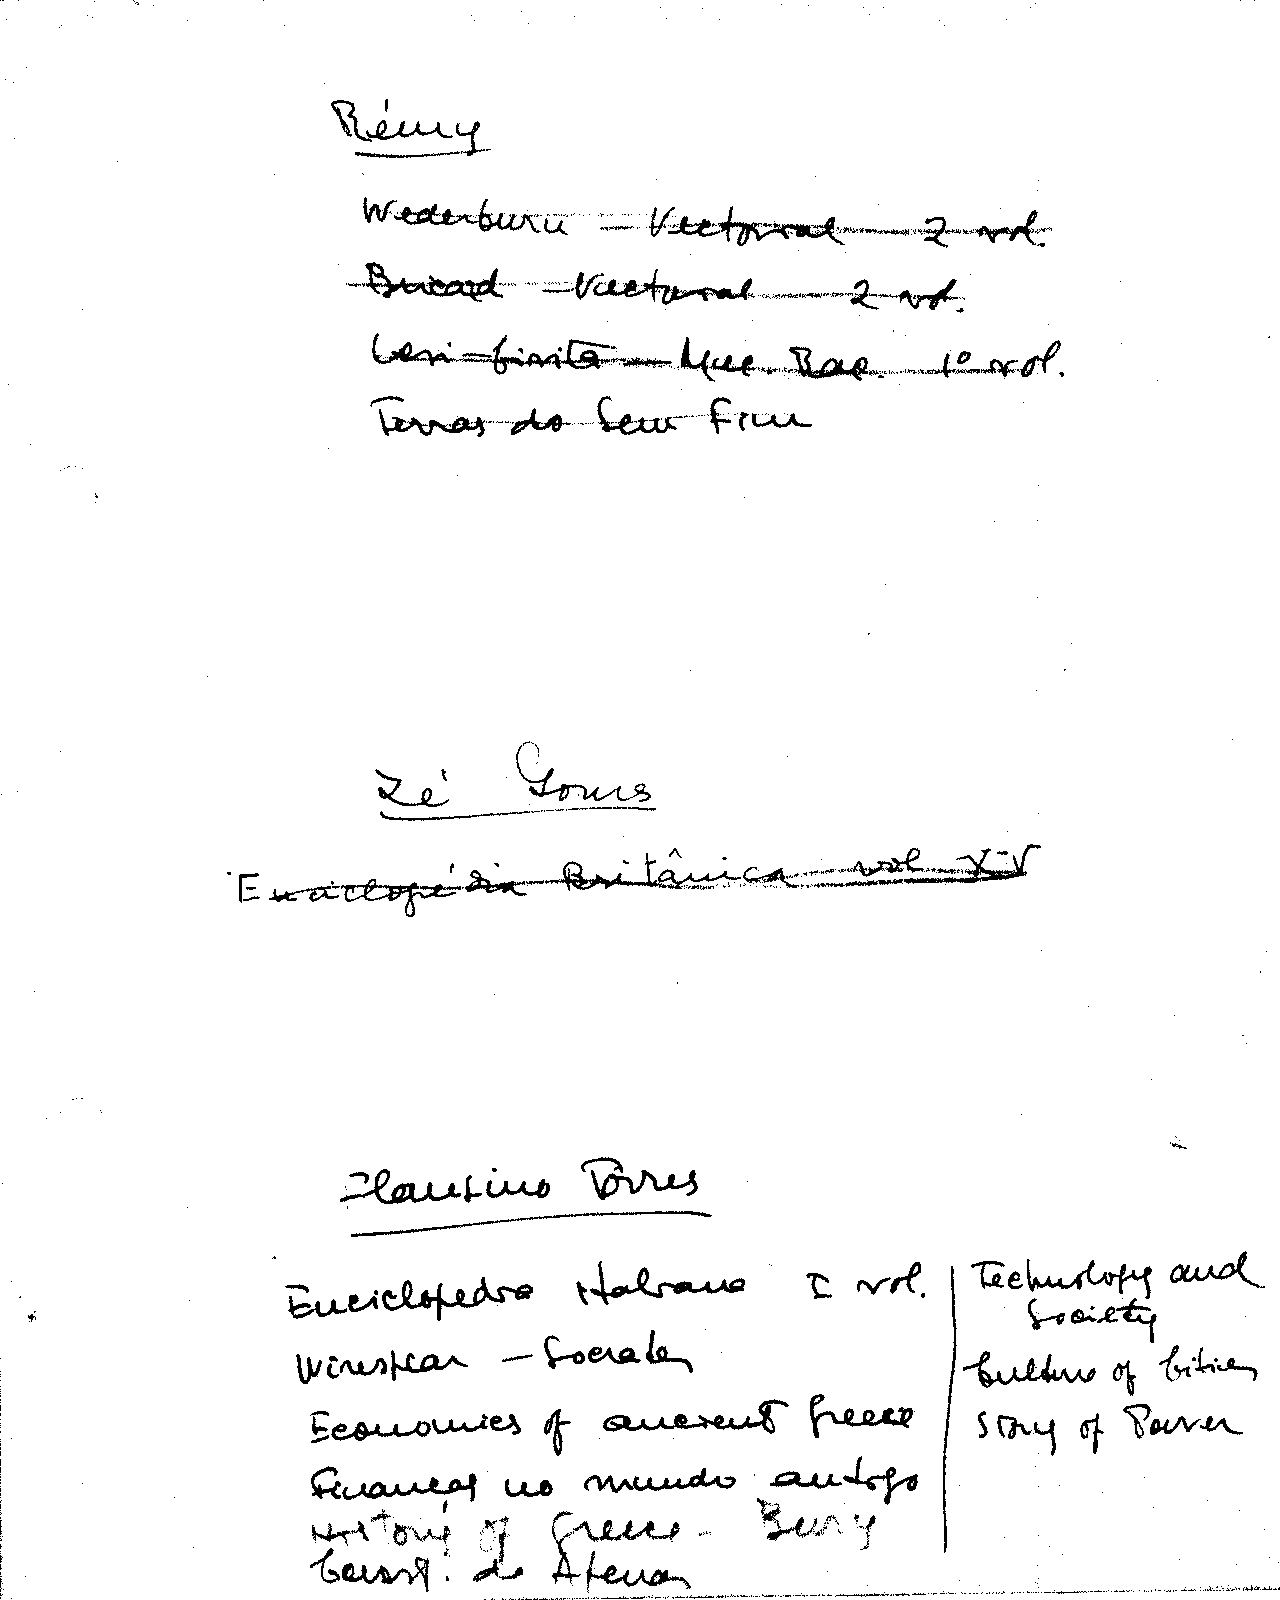 Rémy
Wederburn – Vectorial 2 vol.
Bricard – Vectorial 2 vol.
Levi-Civita 1º vol.
Terras do Sem Fim
Zé Gomes
Enciclopédia Britânica vol XV
Flausino Tôrres
Enciclopedia Italiana I vol.
Winspear – Socrates
Economics of ancient Greece
Finanças no mundo antigo
History of Greece – Bury
Const. de Atenas
Technology and
Society
Culture of Cities
Story of Power